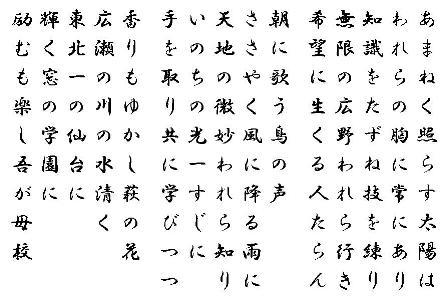 あまねく照らす太陽は
われらの胸に常にあり
知識をたずね技を練り
無限の広野われら行き
希望に生くる人たらん
朝に歌う鳥の声
ささやく風に降る雨に
天地の微妙われら知り
いのちの光一すじに
手を取り共に学びつつ
香りもゆかし萩の花
広瀬の川の水清く
東北一の仙台に
輝く窓の学園に
励むも楽し吾が母校